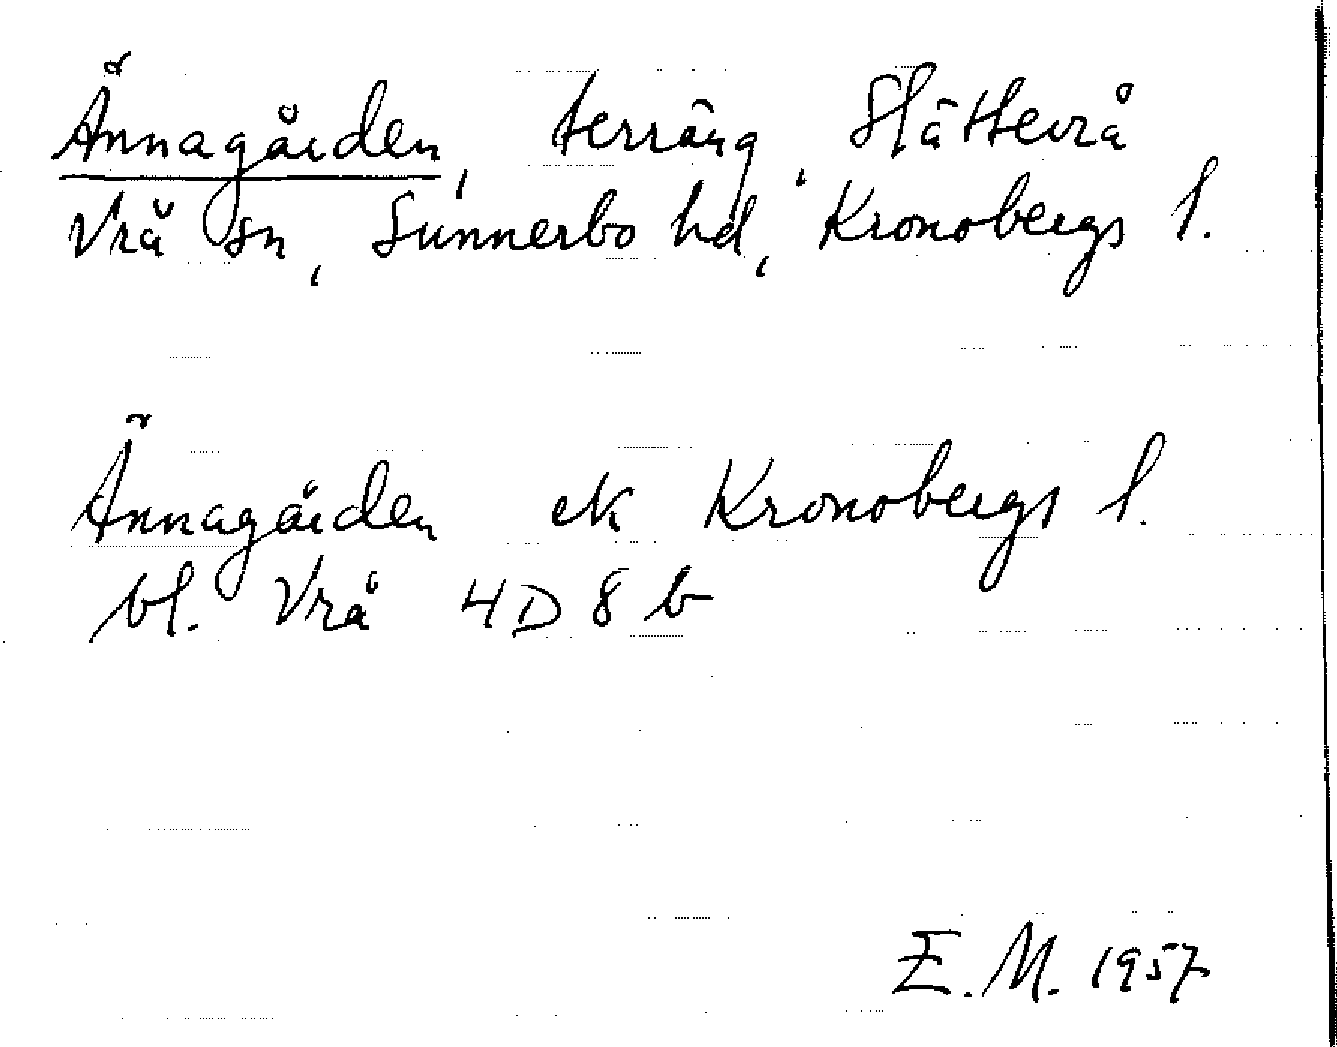 Ännagården, terräng, Slättevrå
Vrå sn, Sunnerbo hd, Kronobergs l.
Ännagården ek Kronobergs l.
bl. Vrå 4D 8 b
E.M. 1957